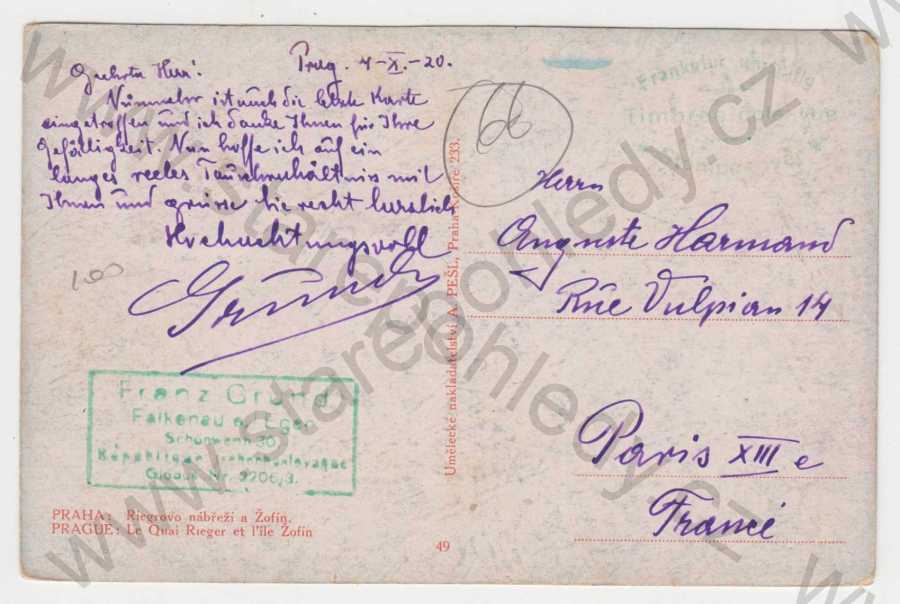 Geehrter Herr! Prag. 4-X.-20.
Nunmehr ist auch die letzte Karte
eingetroffen und ich danke Ihnen für Ihre
Gefälligkeit. Nun hoffe ich auf ein
langes reeles Tauschverhältnis mit
Ihnen und grüsse Sie recht herzlich
Hochachtungsvoll
Gründ
100
66
Frankatur
Timbres
Herrn
Auguste Harmand
Rue Vulpian 14
Paris XIII e
France
Umělecké nakladatelství A. PEŠL, Praha-Košíře 233.
Franz Gründ
Falkenau a/ Eger
République
Globus Nr. 2206/3.
PRAHA: Riegrovo nábřeží a Žofín.
PRAGUE: Le Quai Rieger et l'île Žofín
49
www.starepohledy.cz
www.starepohledy.cz